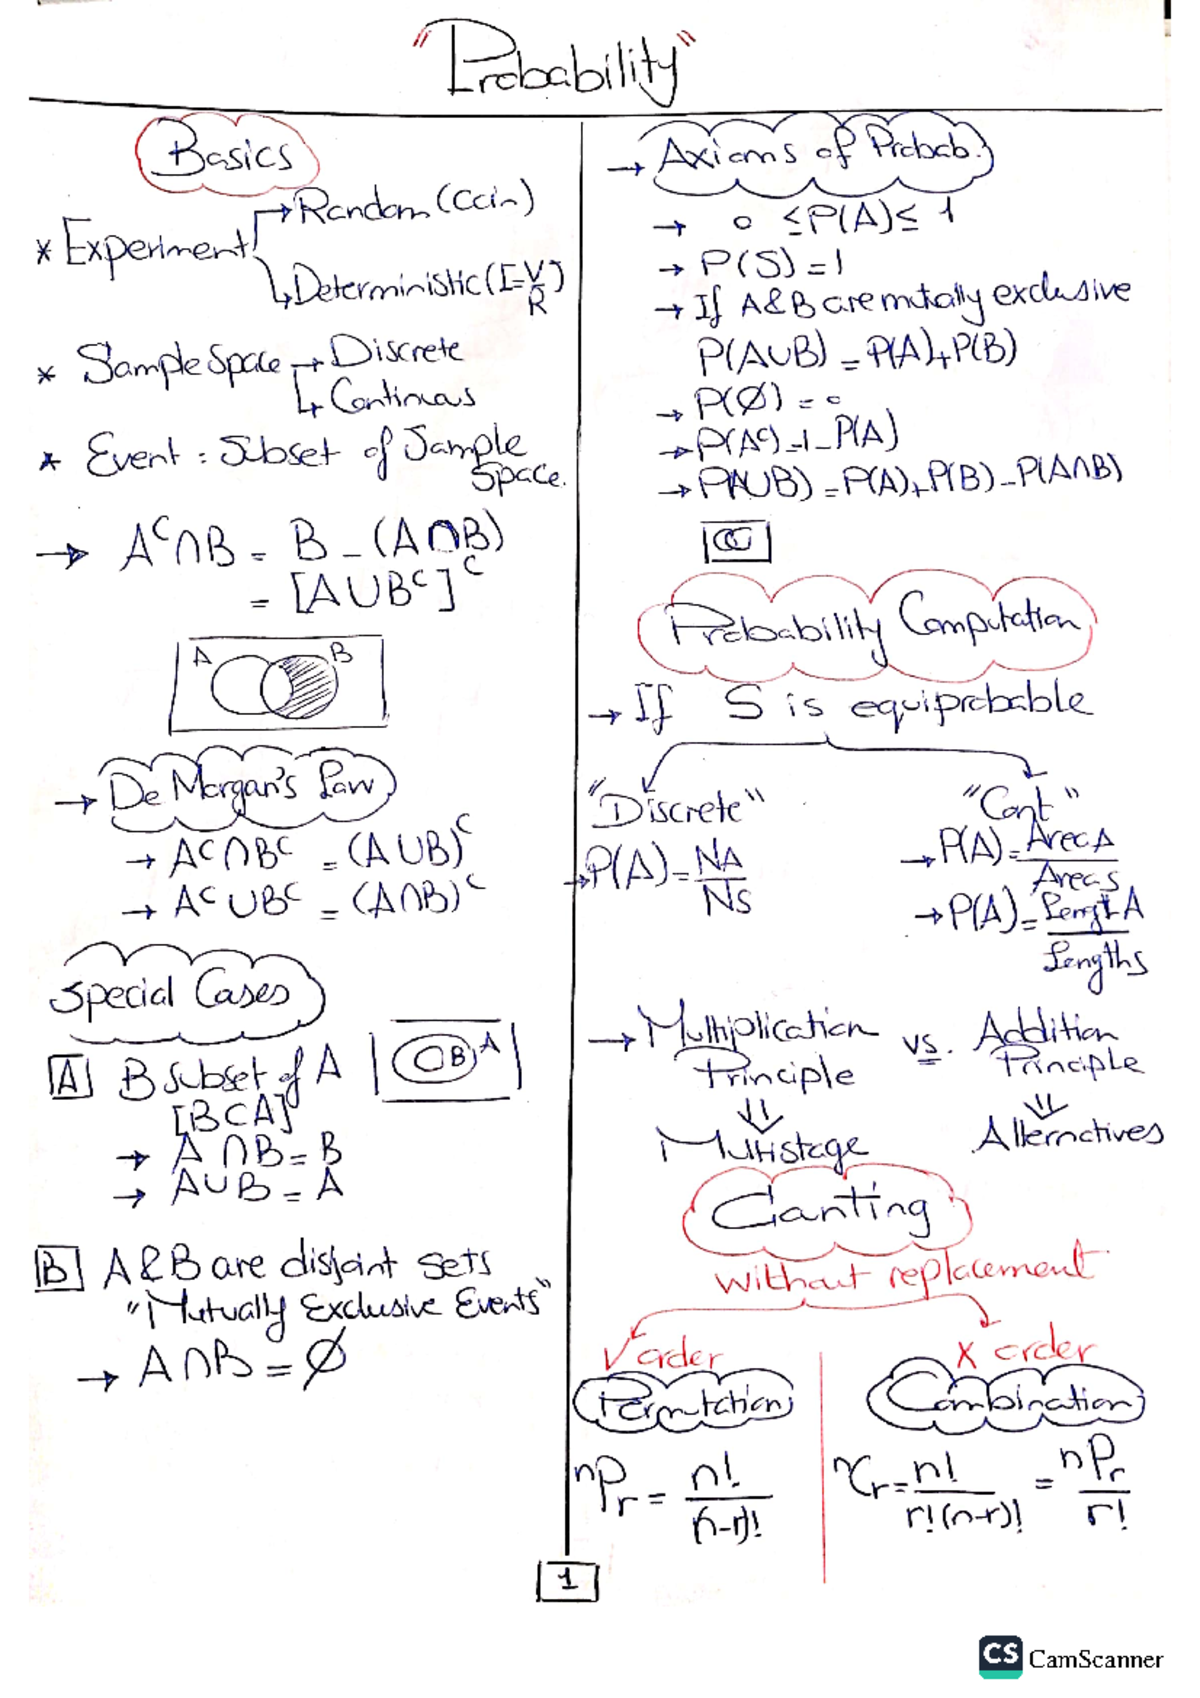 "Probability"
Basics
* Experiment
→ Random (Coin)
↳ Deterministic (I = V/R)
* Sample Space → Discrete
↳ Continuous
* Event : Subset of Sample
Space.
→ Aᶜ∩B = B - (A∩B)
= [A∪Bᶜ]ᶜ
A B
→ De Morgan's Law
→ Aᶜ∩Bᶜ = (A∪B)ᶜ
→ Aᶜ∪Bᶜ = (A∩B)ᶜ
Special Cases
[A] B subset of A
[B⊂A]
B A
→ A∩B = B
→ A∪B = A
[B] A & B are disjoint sets
"Mutually Exclusive Events"
→ A∩B = ∅
→ Axioms of Probab.
→ 0 ≤ P(A) ≤ 1
→ P(S) = 1
→ If A & B are mutually exclusive
P(A∪B) = P(A) + P(B)
→ P(∅) = 0
→ P(Aᶜ) = 1 - P(A)
→ P(A∪B) = P(A) + P(B) - P(A∩B)
Probability Computation
→ If S is equiprobable
"Discrete" "Cont"
→ P(A) = NA / NS
→ P(A) = Area A / Area S
→ P(A) = Length A / Length S
→ Multiplication vs. Addition
Principle Principle
⇓ ⇓
Multistage Alternatives
Counting
without replacement
√ order X order
Permutation Combination
nPr = n! / (n-r)!
nCr = n! / r!(n-r)! = nPr / r!
1
CS CamScanner